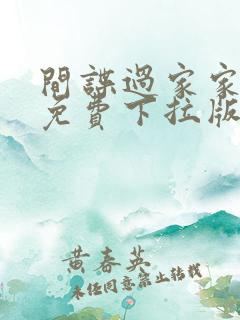 間諜過家家
免費下拉版
黄春英
未经同意禁止转载